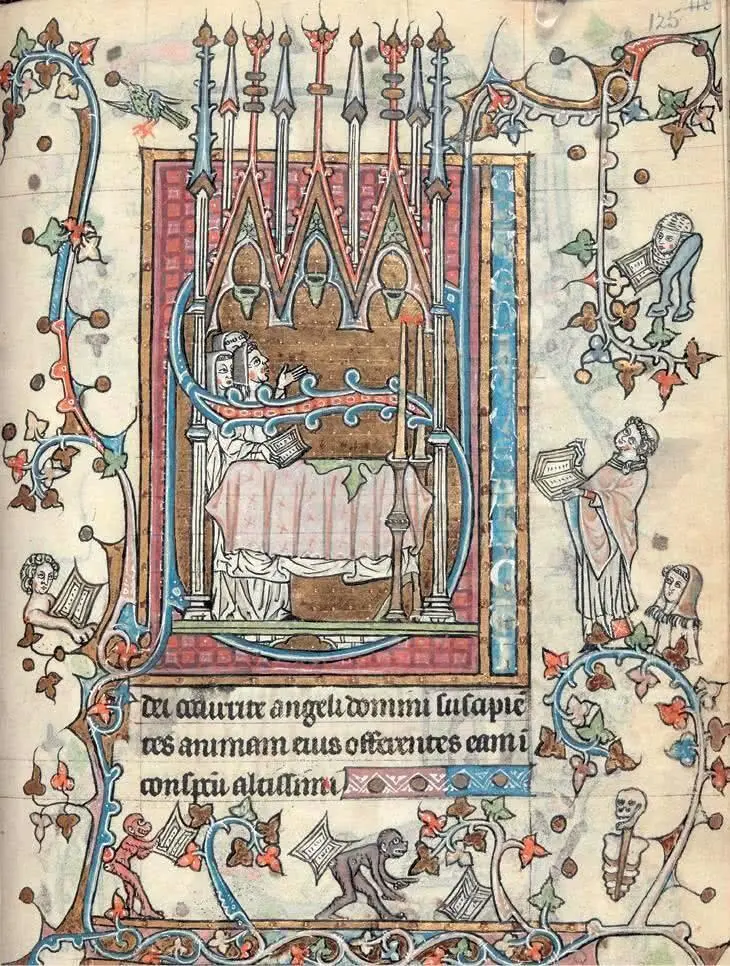 125
S
dei occurrite angeli domini suscipiē
tes animam eius offerentes eam ī
conspcū altissimi